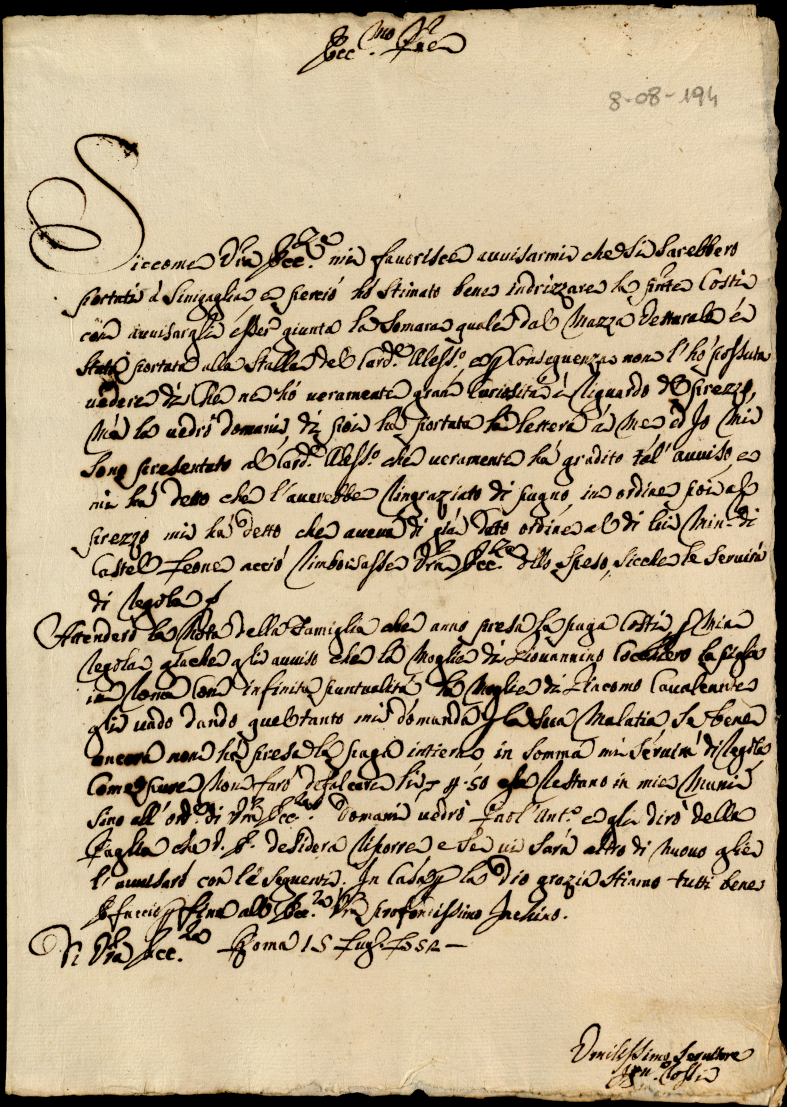 Ecc.mo Pre
8-08-194
Siccome Vra Ecc.za mi favorisce avvisarmi che si sarebbero
portati à Sinigaglia e perciò hò stimato bene indrizzare la pnte Costì
con avvisargli esser giunta la Somara quale dal Mazza Vetturale è
stata portata alla Stalla del Card.e Aless.o, e p Conseguenza non l'hò possuta
vedere di che ne hò veramente gran Curiosità à riguardo del prezzo,
Mà la vedrò domani di poi hà portata la lettera à Me ed Io Mi
sono presentato al Card.e Aless.o che veramente hà gradito tal' avviso, e
mi hà detto che l'averebbe ringraziato di pugno, in ordine poi al
prezzo mi hà detto che aveva di già dato ordine al di lui Min. di
Castel Leone acciò rimborsasse Vra Ecc.za dello speso, sicche le servirà
di regola
Attenderò la Nota della Famiglia che anno presa la paga Costì p Mia
regola giache gli avviso che la Moglie di Giovannino Cocchiero la piglia
in Roma Con infinita puntualità la Moglie di Giacomo Cavalcante
gli vado dando quel tanto mi domanda p la sua Malatia se bene
ancora non hà presa la paga intiera in somma mi servirà di regola
Come pure Non farò defalcare li 50 che restano in mie Mani
sino all'ord.e di Vra Ecc.za Domani vedrò Paol' Ant.o e gli dirò della
Paglia che V. E. desidera riporre e se vi sarà altro di nuovo glie
l'avvisarò con le seguenti. In Casa p la Dio grazia stiamo tutti bene
E faccio p fine all' Ecc.za Vra profondissimo Inchino.
Di Vra Ecc.za Roma 15
Umilissimo Servitore